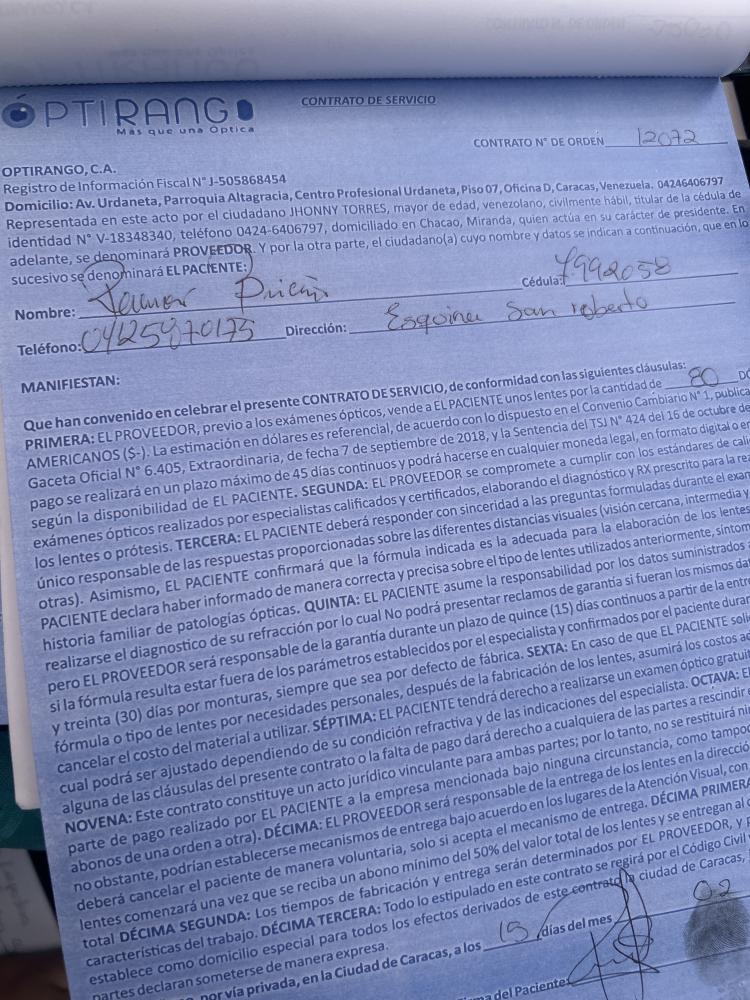 ÓPTIRANGO
Más que una Optica
CONTRATO DE SERVICIO
CONTRATO N° DE ORDEN 12072
OPTIRANGO, C.A.
Registro de Información Fiscal N° J-505868454
Domicilio: Av. Urdaneta, Parroquia Altagracia, Centro Profesional Urdaneta, Piso 07, Oficina D, Caracas, Venezuela. 04246406797
Representada en este acto por el ciudadano JHONNY TORRES, mayor de edad, venezolano, civilmente hábil, titular de la cédula de
identidad N° V-18348340, teléfono 0424-6406797, domiciliado en Chacao, Miranda, quien actúa en su carácter de presidente. En
adelante, se denominará PROVEEDOR. Y por la otra parte, el ciudadano(a) cuyo nombre y datos se indican a continuación, que en lo
sucesivo se denominará EL PACIENTE:
Nombre: Cédula: 7992058
Teléfono: 04125970175 Dirección: Esquina San roberto
MANIFIESTAN:
Que han convenido en celebrar el presente CONTRATO DE SERVICIO, de conformidad con las siguientes cláusulas:
PRIMERA: EL PROVEEDOR, previo a los exámenes ópticos, vende a EL PACIENTE unos lentes por la cantidad de 80 DÓ
AMERICANOS ($-). La estimación en dólares es referencial, de acuerdo con lo dispuesto en el Convenio Cambiario N° 1, publica
Gaceta Oficial N° 6.405, Extraordinaria, de fecha 7 de septiembre de 2018, y la Sentencia del TSJ N° 424 del 16 de octubre de
pago se realizará en un plazo máximo de 45 días continuos y podrá hacerse en cualquier moneda legal, en formato digital o en
según la disponibilidad de EL PACIENTE. SEGUNDA: EL PROVEEDOR se compromete a cumplir con los estándares de cali
exámenes ópticos realizados por especialistas calificados y certificados, elaborando el diagnóstico y RX prescrito para la rea
los lentes o prótesis. TERCERA: EL PACIENTE deberá responder con sinceridad a las preguntas formuladas durante el exam
único responsable de las respuestas proporcionadas sobre las diferentes distancias visuales (visión cercana, intermedia y
otras). Asimismo, EL PACIENTE confirmará que la fórmula indicada es la adecuada para la elaboración de los lentes
PACIENTE declara haber informado de manera correcta y precisa sobre el tipo de lentes utilizados anteriormente, síntom
historia familiar de patologías ópticas. QUINTA: EL PACIENTE asume la responsabilidad por los datos suministrados
realizarse el diagnostico de su refracción por lo cual No podrá presentar reclamos de garantía si fueran los mismos da
pero EL PROVEEDOR será responsable de la garantía durante un plazo de quince (15) días continuos a partir de la entre
si la fórmula resulta estar fuera de los parámetros establecidos por el especialista y confirmados por el paciente duran
y treinta (30) días por monturas, siempre que sea por defecto de fábrica. SEXTA: En caso de que EL PACIENTE soli
fórmula o tipo de lentes por necesidades personales, después de la fabricación de los lentes, asumirá los costos a
cancelar el costo del material a utilizar. SÉPTIMA: EL PACIENTE tendrá derecho a realizarse un examen óptico gratuit
cual podrá ser ajustado dependiendo de su condición refractiva y de las indicaciones del especialista. OCTAVA: El
alguna de las cláusulas del presente contrato o la falta de pago dará derecho a cualquiera de las partes a rescindir
NOVENA: Este contrato constituye un acto jurídico vinculante para ambas partes; por lo tanto, no se restituirá nin
parte de pago realizado por EL PACIENTE a la empresa mencionada bajo ninguna circunstancia, como tampoc
abonos de una orden a otra). DÉCIMA: EL PROVEEDOR será responsable de la entrega de los lentes en la direcció
no obstante, podrían establecerse mecanismos de entrega bajo acuerdo en los lugares de la Atención Visual, con
deberá cancelar el paciente de manera voluntaria, solo si acepta el mecanismo de entrega. DÉCIMA PRIMERA
lentes comenzará una vez que se reciba un abono mínimo del 50% del valor total de los lentes y se entregan al
total DÉCIMA SEGUNDA: Los tiempos de fabricación y entrega serán determinados por EL PROVEEDOR, y p
características del trabajo. DÉCIMA TERCERA: Todo lo estipulado en este contrato se regirá por el Código Civil
establece como domicilio especial para todos los efectos derivados de este contrato la ciudad de Caracas,
partes declaran someterse de manera expresa.
por vía privada, en la Ciudad de Caracas, a los 15 días del mes 02
del Paciente: